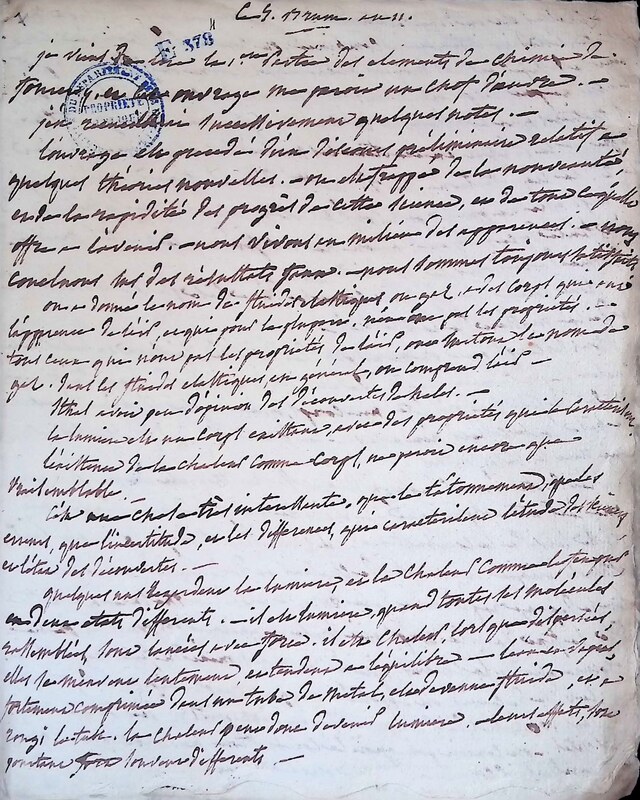 C. 9. Brum. an 11.
E 378
PROPRIÉTÉ
je viens de lire la 1.ere partie des elements de chimie de
fourcroy, et cet ouvrage me paroit un chef d'oeuvre. —
j'en recueillerai successivement quelques notes. —
l'ouvrage est precedé d'un discours préliminaire relatif a
quelques théories nouvelles. — on est frappé de la nouveauté,
et de la rapidité des progrès de cette science, et de tout ce qu'elle
offre a l'avenir. — nous vivons au milieu des apparences. —
concluons sur des résultats — nous sommes toujours satisfaits
on a donné le nom de fluides elastiques ou gaz, a des corps qui ont
l'apparence de l'air, et qui pour la plupart, n'en ont pas les propriétés. —
tous ceux qui n'ont pas les propriétés de l'air, on a le nom de
gaz. dans les fluides elastiques, en général, on comprend l'air —
Sthal avoit peu d'opinion des découvertes de hales. —
la lumiere est un corps existant, avec des propriétés qui le caractérisent
l'existence de la chaleur comme corps, ne paroit encore que
vraisemblable. —
C'est une chose très interessante, que le tatonnement, que les
erreurs, que l'incertitude, et les differences, qui caractérisent l'étude des sciences,
et l'état des découvertes. —
quelques uns regardent la lumiere, et la chaleur comme le feu
en deux etats differents. — il est lumiere, quand toutes ses molécules
rassemblées, sont lancées avec force. il est chaleur, lorsque dispersées,
elles se meuvent lentement, et tendent a l'équilibre —
fortement comprimée dans un tube de metal, elle devenue fluide, et a
rougi le tube. la chaleur peut donc devenir lumiere. leurs effets, sont
pourtant souvent differents. —